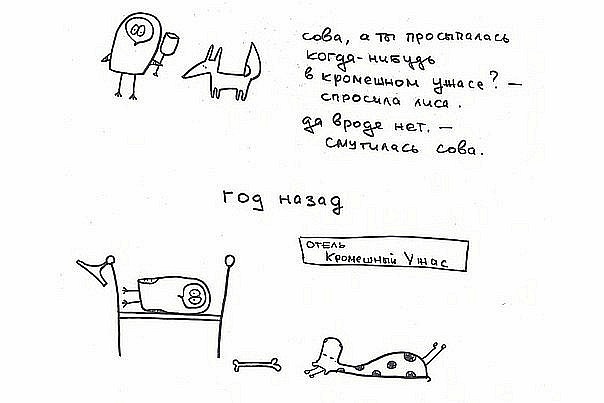 сова, а ты просыпалась
когда-нибудь
в кромешном ужасе? —
спросила лиса.
да вроде нет. —
смутилась сова.
год назад
отель
Кромешный Ужас